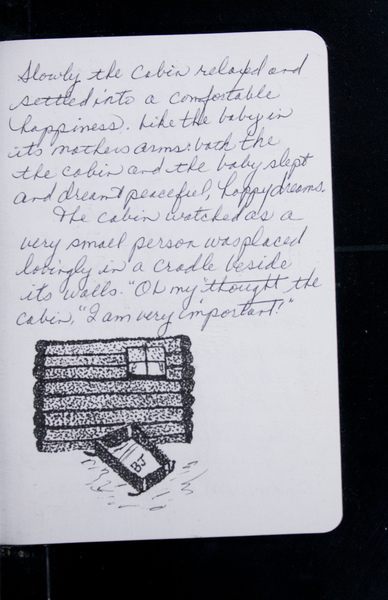 Slowly the cabin relaxed and
settled into a comfortable
happiness. Like the baby in
its mothers arms: both the
the cabin and the baby slept
and dreamt peaceful, happy dreams.
The cabin watched as a
very small person was placed
lovingly in a cradle beside
its walls. "Oh my" thought the
cabin, "I am very important!"
BJ